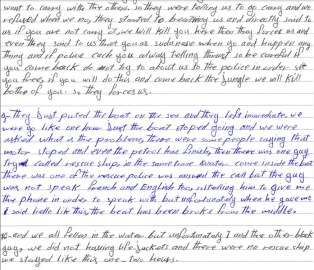 want to carry with the others so they were telling us to go carry and we
refused when we no, they started to beating us and directly said to
us if you are not carry it we will kill you here then they forces us and
even they said to us that you as sudanese when go and happen any
thing and if police catch you always telling so be careful if
you come back do not try to about us to the police in order
you free, if you will do this and come back the jungle we will kill
both of you. so they forces us.
9- They Just puted the boat on the sea and they left immediate. we
were go like one hour Just the boat stoped going and we were
asked what is the problem, there were some people saying that
motor stoped and even the petrol has finish, then there was one guy
called rescue ship, in the same time water come inside the boat
there was one of the rescue police was the call but the guy
was not speak French and English too, telling him to give me
the phone in order to speak with but unfortunately when he gave me
I said hello like this the boat has been broke from the middle.
10- and we all fallen in the water but unfortunately I and the other black
guy, we did not having life jackets and there were no rescue ship
we stayed like this one - two hours.